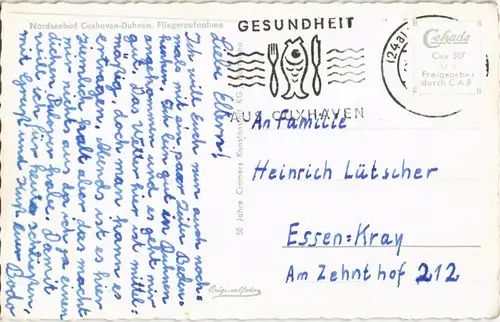 Nordseebad Cuxhaven-Duhnen. Fliegeraufnahme
GESUNDHEIT
AUS CUXHAVEN
(24a)
Cekade
Cux 507
Freigegeben
durch C.A.B
50 Jahre Cramers Kunstanstalt KG
Originalfoto
Liebe Eltern!
Ich will Euch nur auch noch-
mals mit ein paar Zeilen beden-
ken. Ich bin gut in Duhnen
angekommen und es geht mir
gut. Das Wetter hier ist mittel-
mäßig, doch man kann es
ertragen. Abends ist es hier
ziemlich kalt aber das macht
mir nichts aus da ich ja einen
dicken Pulover habe. Damit
will ich für heute schließen,
mit Gruß und Kuß euer Bodo
An Familie
Heinrich Lütscher
Essen=Kray
Am Zehnthof 212